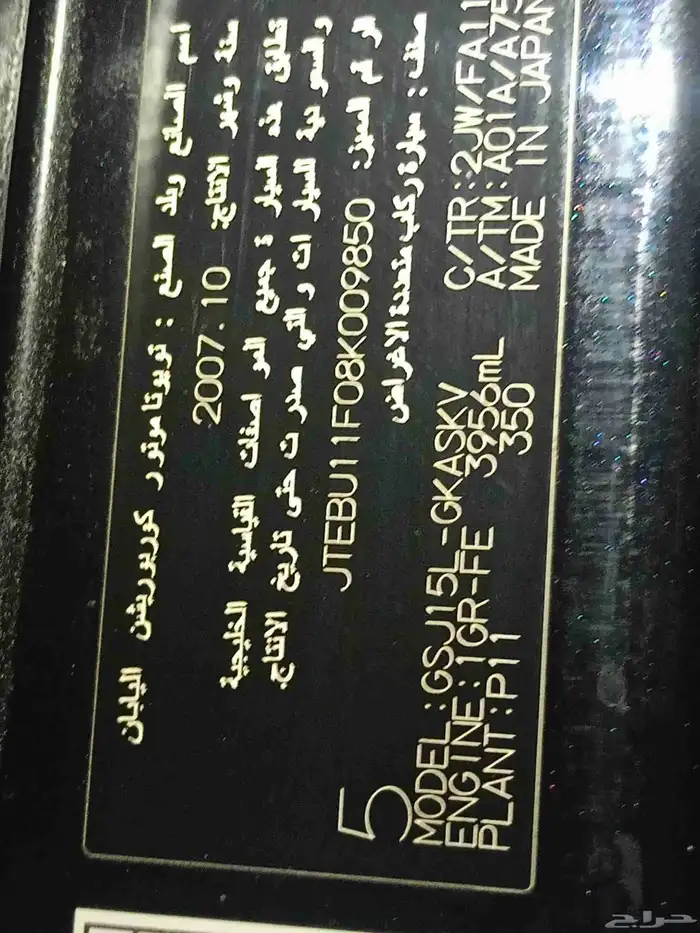 اسم الصانع وبلد الصنع : تويوتا موتور كوربوريشن اليابان
سنة وشهر الانتاج: 2007.10
تطابق هذه السيارة جميع المواصفات القياسية الخليجية
والسعودية للسيارات والتي صدرت حتى تاريخ الانتاج.
الرقم المميز: JTEBU11F08K009850
صنف : سيارة ركاب متعددة الاغراض
5
MODEL:GSJ15L-GKASKV C/TR:2JW/FA11
ENGINE:1GR-FE 3956mL A/TM:A01A/A75
PLANT:P11 350 MADE IN JAPAN
حراج